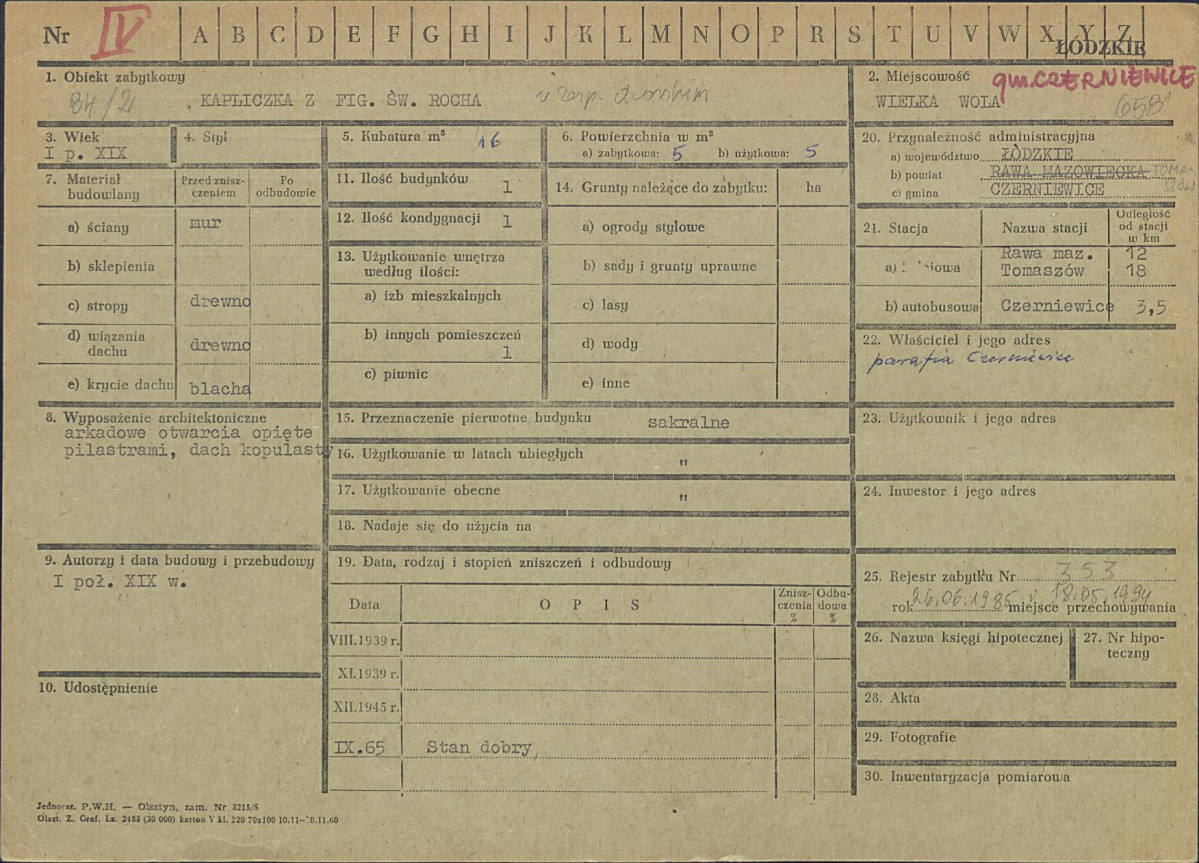 Nr IV A B C D E F G H I J K L M N O P R S T U V W X Y Z
ŁÓDZKIE
1. Obiekt zabytkowy
84/2 KAPLICZKA Z FIG. ŚW. ROCHA w zesp. dworskim
2. Miejscowość gm. CZERNIEWICE
WIELKA WOLA 658
3. Wiek
I p. XIX
4. Styl
5. Kubatura m³ 16
6. Powierzchnia w m²
a) zabytkowa: 5 b) użytkowa: 5
20. Przynależność administracyjna
a) województwo ŁÓDZKIE
b) powiat RAWA MAZOWIECKA TOMASZÓW
c) gmina CZERNIEWICE
7. Materiał budowlany
Przed zniszczeniem
Po odbudowie
a) ściany mur
b) sklepienia
c) stropy drewno
d) wiązania dachu drewno
e) krycie dachu blacha
11. Ilość budynków 1
12. Ilość kondygnacji 1
13. Użytkowanie wnętrza
według ilości:
a) izb mieszkalnych
b) innych pomieszczeń
1
c) piwnic
14. Grunty należące do zabytku: ha
a) ogrody stylowe
b) sady i grunty uprawne
c) lasy
d) wody
e) inne
21. Stacja Nazwa stacji Odległość od stacji w km
a) Rawa maz. 12
Tomaszów 18
b) autobusowa Czerniewice 3,5
22. Właściciel i jego adres
parafia Czerniewice
8. Wyposażenie architektoniczne
arkadowe otwarcia opięte
pilastrami, dach kopulasty
15. Przeznaczenie pierwotne budynku sakralne
16. Użytkowanie w latach ubiegłych "
17. Użytkowanie obecne "
18. Nadaje się do użycia na
23. Użytkownik i jego adres
24. Inwestor i jego adres
9. Autorzy i data budowy i przebudowy
I poł. XIX w.
10. Udostępnienie
19. Data, rodzaj i stopień zniszczeń i odbudowy
Data OPIS Zniszczenia % Odbudowa %
VIII.1939 r.
XI.1939 r.
XII.1945 r.
IX.65 Stan dobry
25. Rejestr zabytku Nr 353
rok 26.06.1985 i 18.05.1994 miejsce przechowywania
26. Nazwa księgi hipotecznej
27. Nr hipoteczny
28. Akta
29. Fotografie
30. Inwentaryzacja pomiarowa
Jednoraz. P.W.H. — Olsztyn, zam. Nr 3215/S
Olszt. Z. Graf. Lz. 2485 (30 000) karton V kl. 220 70x100 10.11—10.11.60